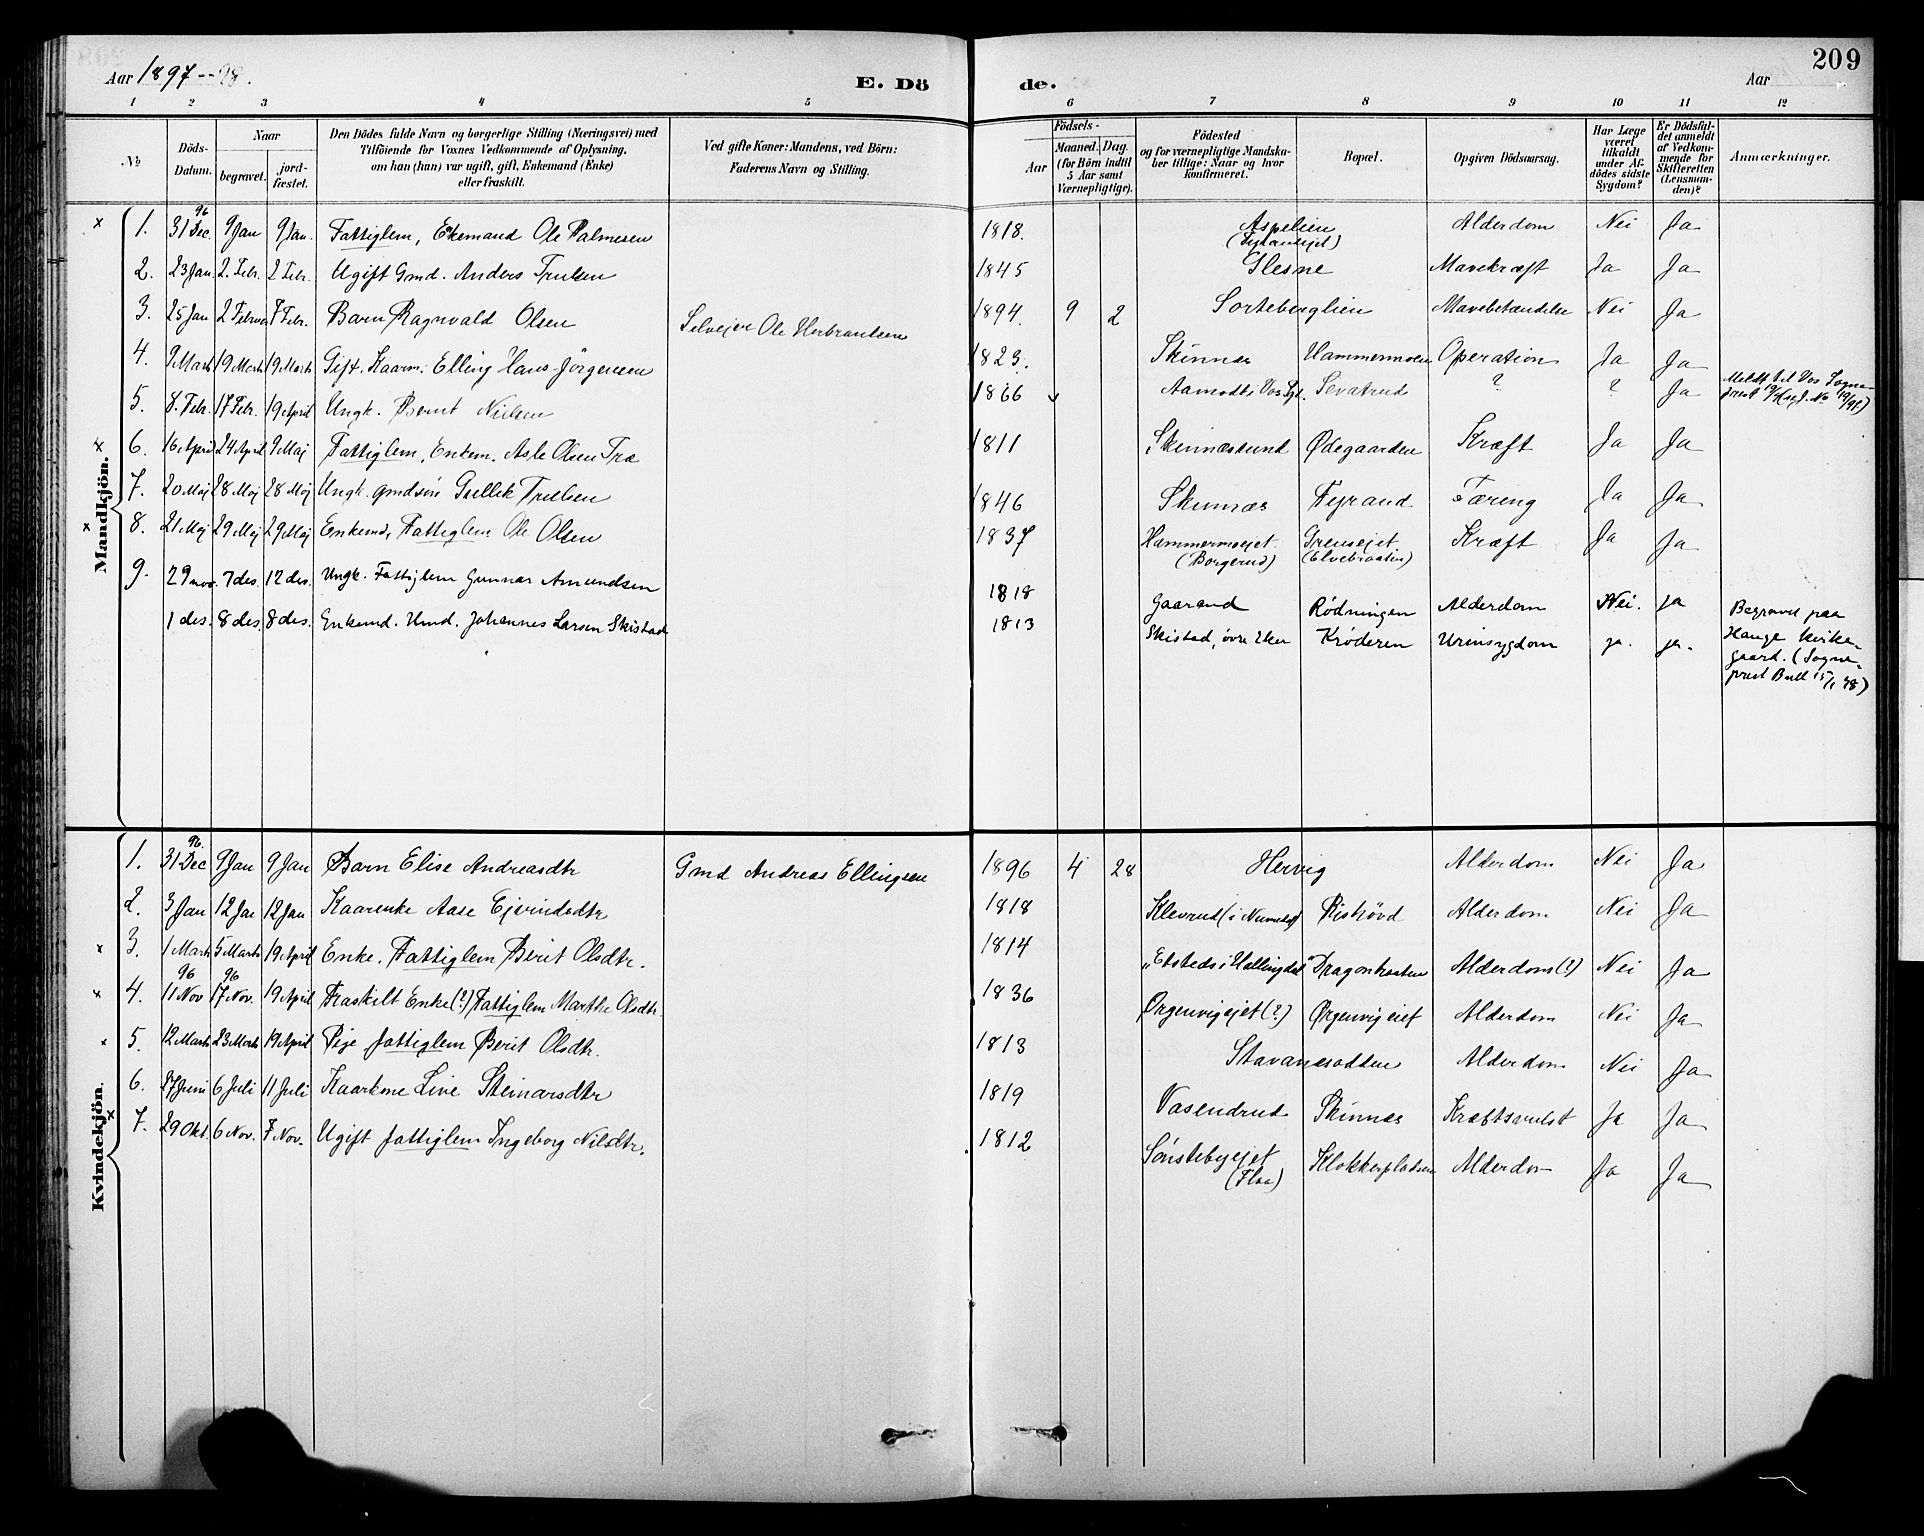 Aar 1897--98.
E. Dö
de.
209
Aar
1 2 3 4 5 6 7 8 9 10 11 12
No
Döds-Datum.
Naar
begravet.
jord-fæstet.
Den Dödes fulde Navn og borgerlige Stilling (Næringsvei) med
Tilföiende for Voxnes Vedkommende af Oplysning,
om han (hun) var ugift, gift, Enkemand (Enke)
eller fraskilt.
Ved gifte Koner: Mandens, ved Börn:
Faderens Navn og Stilling.
Födsels-
Aar
Maaned. Dag.
(for Börn indtil
5 Aar samt
Værnepligtige).
Födested
og for værnepligtige Mandska-
ber tillige: Naar og hvor
konfirmeret.
Bopæl.
Opgiven Dödsaarsag.
Har Læge
været
tilkaldt
under Af-
dödes sidste
Sygdom?
Er Dödsfal-
det anmeldt
af Vedkom-
mende for
Skifteretten
(Lensman-
den)?
Anmærkninger.
Mandkjön.
x 1. 31 Dec. 96 9 Jan 9 Jan. Fattiglem, Ekemand Ole Palmesen 1818. Aspelien Alderdom Nei Ja
2. 23 Jan. 2. Febr. 2 Febr. Ugift Gmd. Anders Trulsen 1845 Glesne Mavekræft Ja Ja
3. 25 Jan 2 Februar 7 Febr. Barn Ragnvald Olsen Selveier Ole Herbrandsen 1894. 9 2 Sorteberglien Mavebetændelse Nei Ja
4. 9 Marts 19 Marts 19 Marts Gift. Kaarm. Elling Hans Jörgensen 1823. Skinnæs Hammermoen Operation Ja Ja
5. 8. Febr. 17 Febr. 19 April Ungk. Bernt Nilsen 1866 Aamodts Vor Sgl. Sevatrud ? ? Ja Meldt til Vor Sogne-
prest
x 6. 16 April 24 April 9 Maj Fattiglem, Enkem. Asle Olsen Træ 1811 Skinnæssund Ødegaarden Kræft Ja Ja
7. 20 Maj 28 Maj 28 Maj Ungk. gmdsön Gullik Trulsen 1846 Skinnæs Fyrand. Tæring Ja Ja
x 8. 21 Maj 29 Maj 29 Maj Enkemd, Fattiglem Ole Olsen 1837 Hammermoejet Grensejet Kræft Ja Ja
(Borgerud) (Elvebraaten)
9. 29 nov. 7 des. 12 des. Ungk. Fattiglem Gunnar Amundsen 1818 Gaarand Rödningen Alderdom Nei. ja
1 des. 8 des. 8 des. Enkemd. Hmd. Johannes Larsen Skistad 1813 Skistad, övre Eker Kröderen Urinsygdom ja. ja. Begravet paa
Haugs kirke-
gaard. (Sogne-
prest Bull 15/1 98)
Kvindekjön.
1. 31 Dec 96. 9 Jan 9 Jan Barn Elise Andreasdtr Gmd Andreas Ellingsen 1896 4 28 Hervig Alderdom Nei Ja
2. 3 Jan 12 Jan 12 Jan Kaarenke Aase Ejvindsdtr 1818 Klevrud (i Numedal) Ristövd Alderdom Nei Ja
x 3. 1 Marts 5 Marts 19 April Enke. Fattiglem Berit Olsdtr. 1814 "Etsteds i Hallingdal" Dragonhaaten Alderdom (?) Nei Ja
x 4. 11 Nov 96 17 Nov. 96 19 April Fraskilt Enke (?) Fattiglem Marthe Olsdtr. 1836 Ørgenvigejet (?) Ørgenvigeiet Alderdom Nei Ja
x 5. 12 Marts 23 Marts 19 April Pige fattiglem Berit Olsdtr. 1813 Stavanesodden Alderdom Nei Ja
6. 27 Juni 6 Juli 11 Juli Kaarkone Live Steinarsdtr 1819 Vasendrud Skinnæs Kræftsvulst Ja Ja
x 7. 29 Okt. 6 Nov. 7 Nov. Ugift fattiglem Ingeborg Nilsdtr. 1812 Sönstebyejet Klokkerpladsen Alderdom Ja Ja
(Flaa)